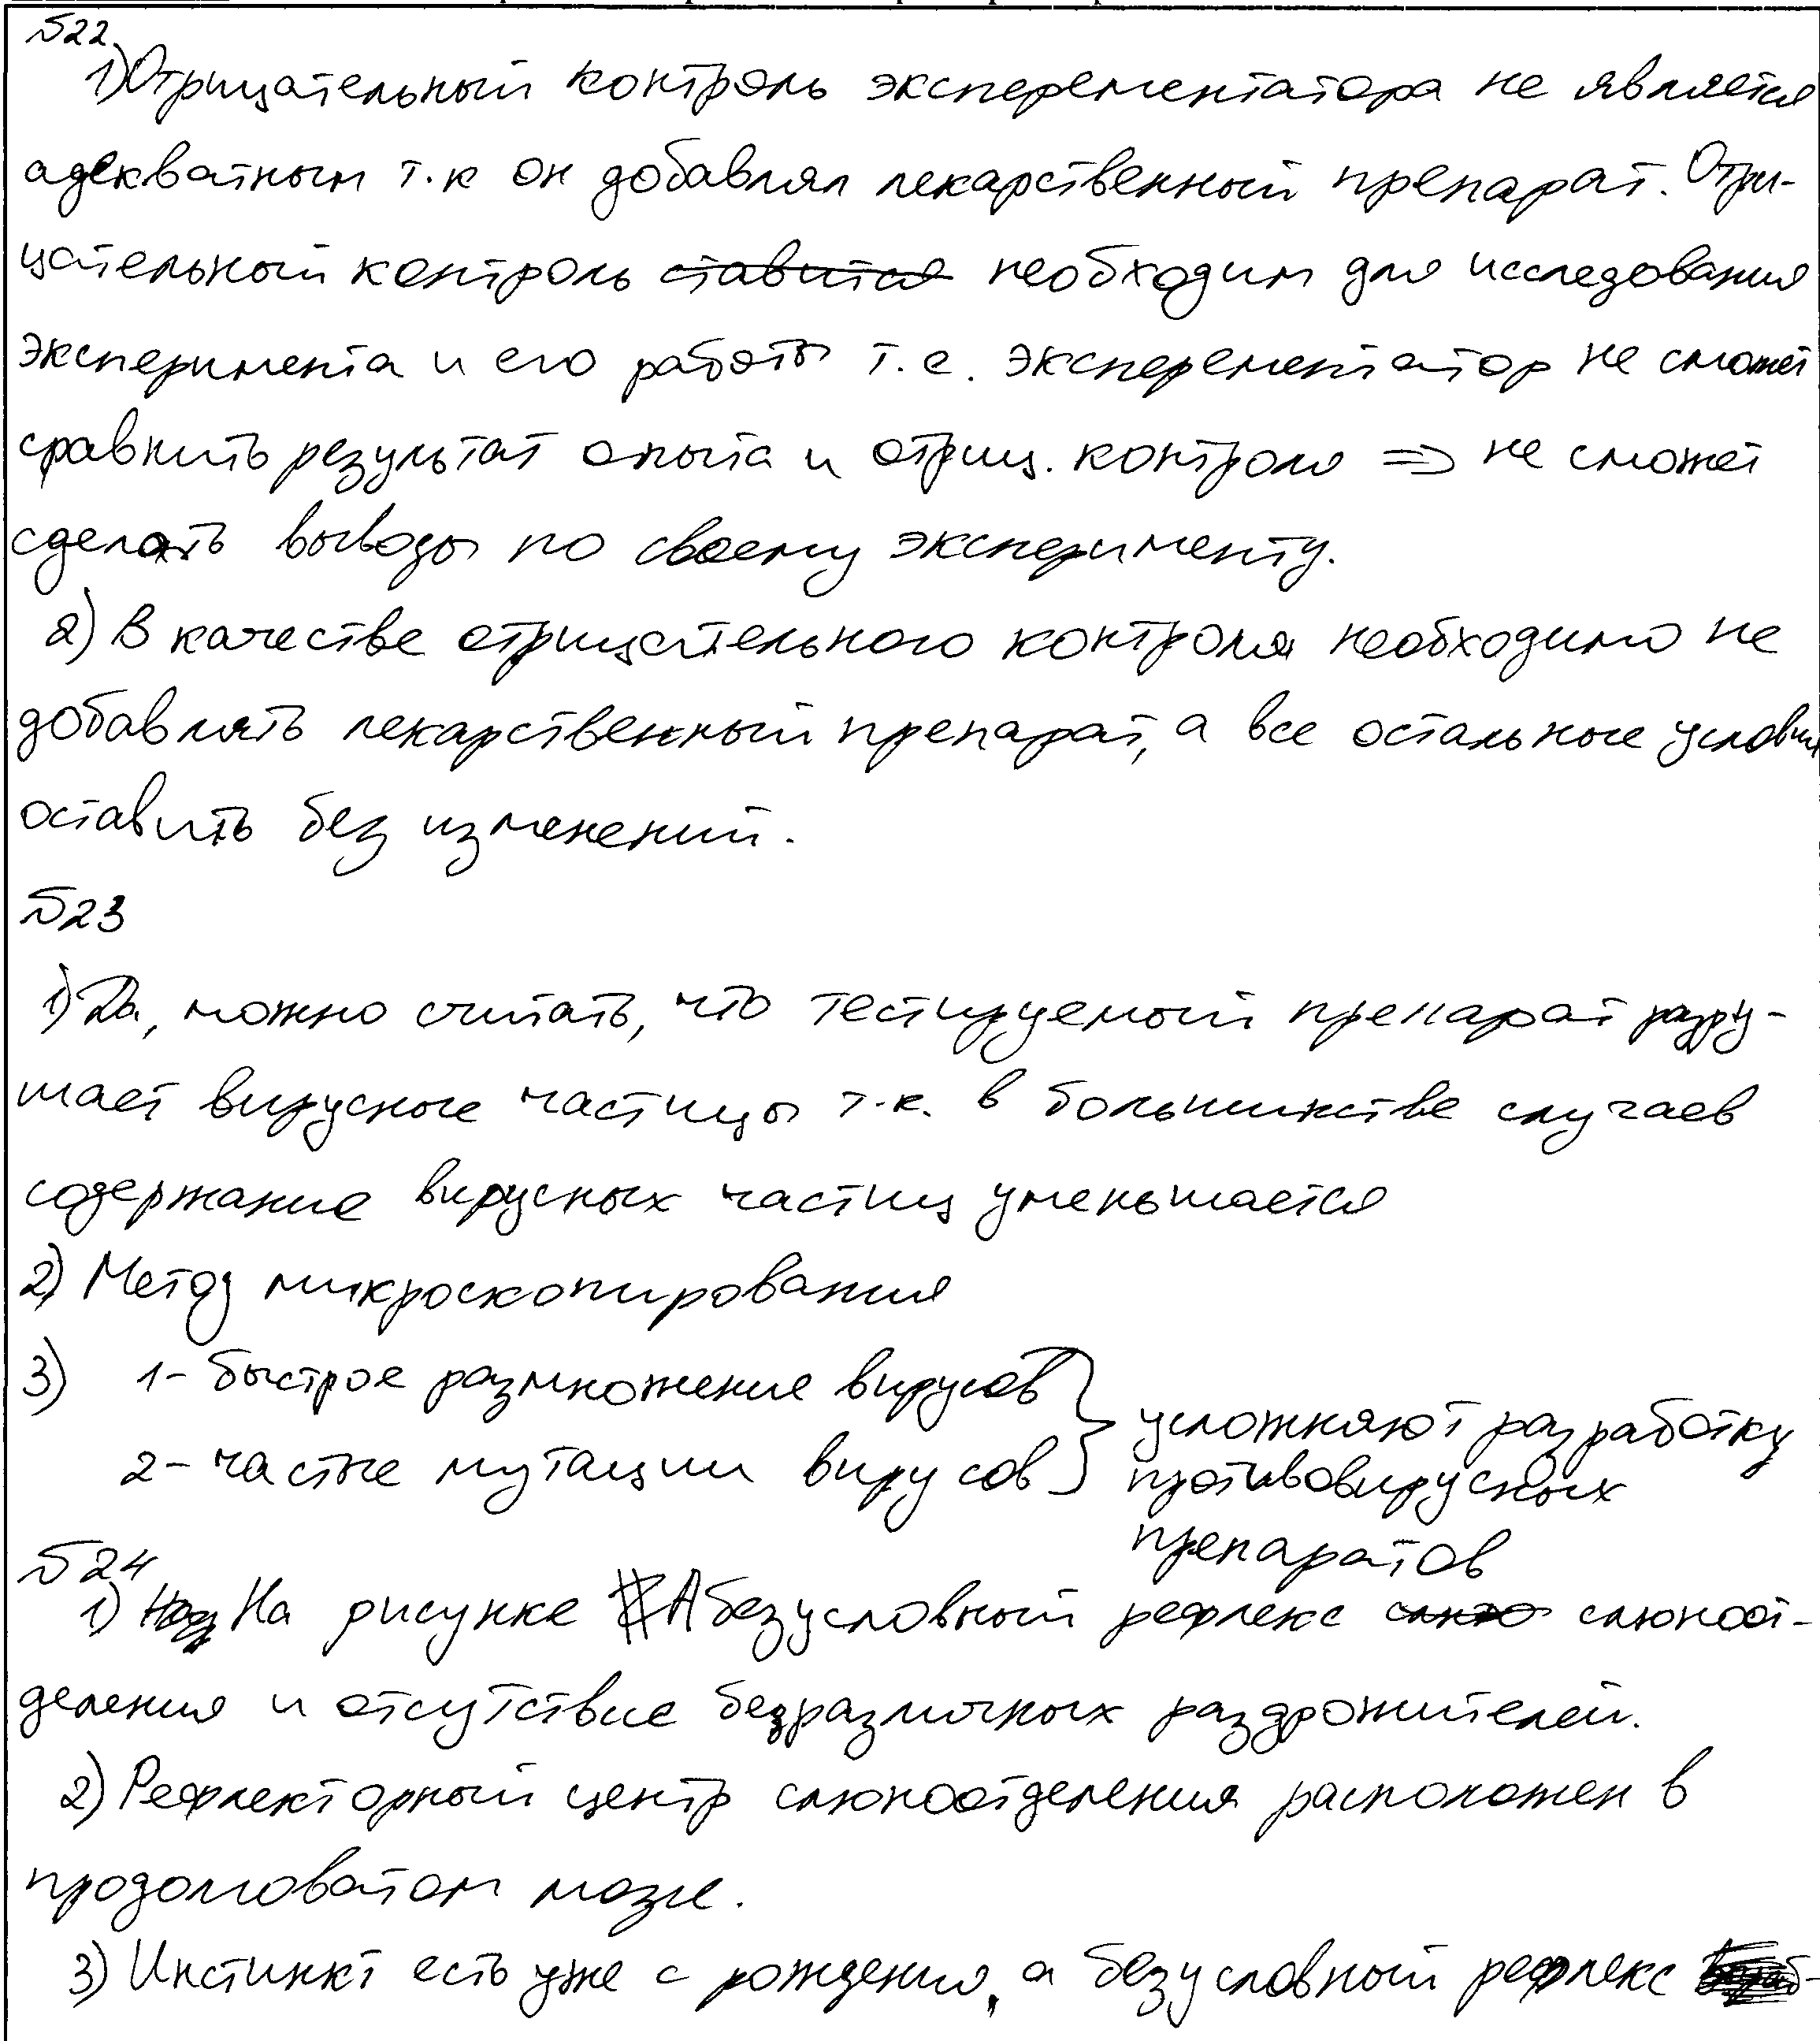 №22.
1) Отрицательный контроль эксперементатора не является
адекватным т.к он добавлял лекарственный препарат. Отри-
цательный контроль ставится необходим для исследования
эксперимента и его работы т.е. эксперементатор не сможет
сравнить результат опыта и отриц. контроля => не сможет
сделать выводы по своему эксперименту.
2) В качестве отрицательного контроля необходимо не
добавлять лекарственный препарат, а все остальные условия
оставить без изменений.
№23
1) Да, можно считать, что тестируемый препарат разру-
шает вирусные частицы т.к. в большинстве случаев
содержание вирусных частиц уменьшается
2) Метод микроскопирования
3) 1- быстрое размножение вирусов
2- частые мутации вирусов
усложняют разработку
противовирусных
препаратов
№24
1) На рисунке А безусловный рефлекс слюноот-
деления и отсутствие безразличных раздрожителей.
2) Рефлекторный центр слюноотделения расположен в
продолговатом мозге.
3) Инстинкт есть уже с рождения, а безусловный рефлекс